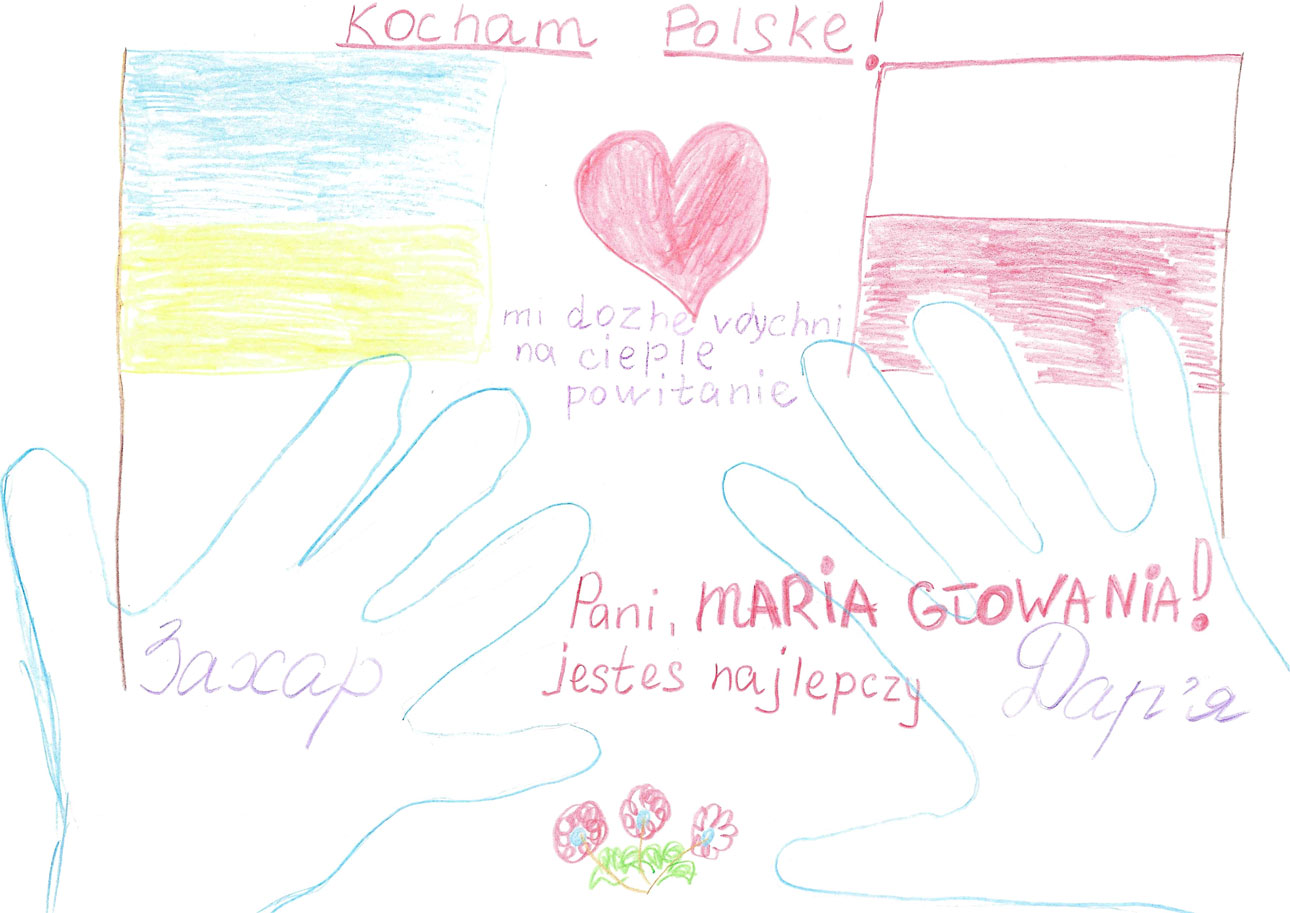 Kocham Polske!
mi dozhe vdychni
na cieple
powitanie
Pani, MARiA GŁOWANiA!
jestes najlepczy
Захар
Дар'я